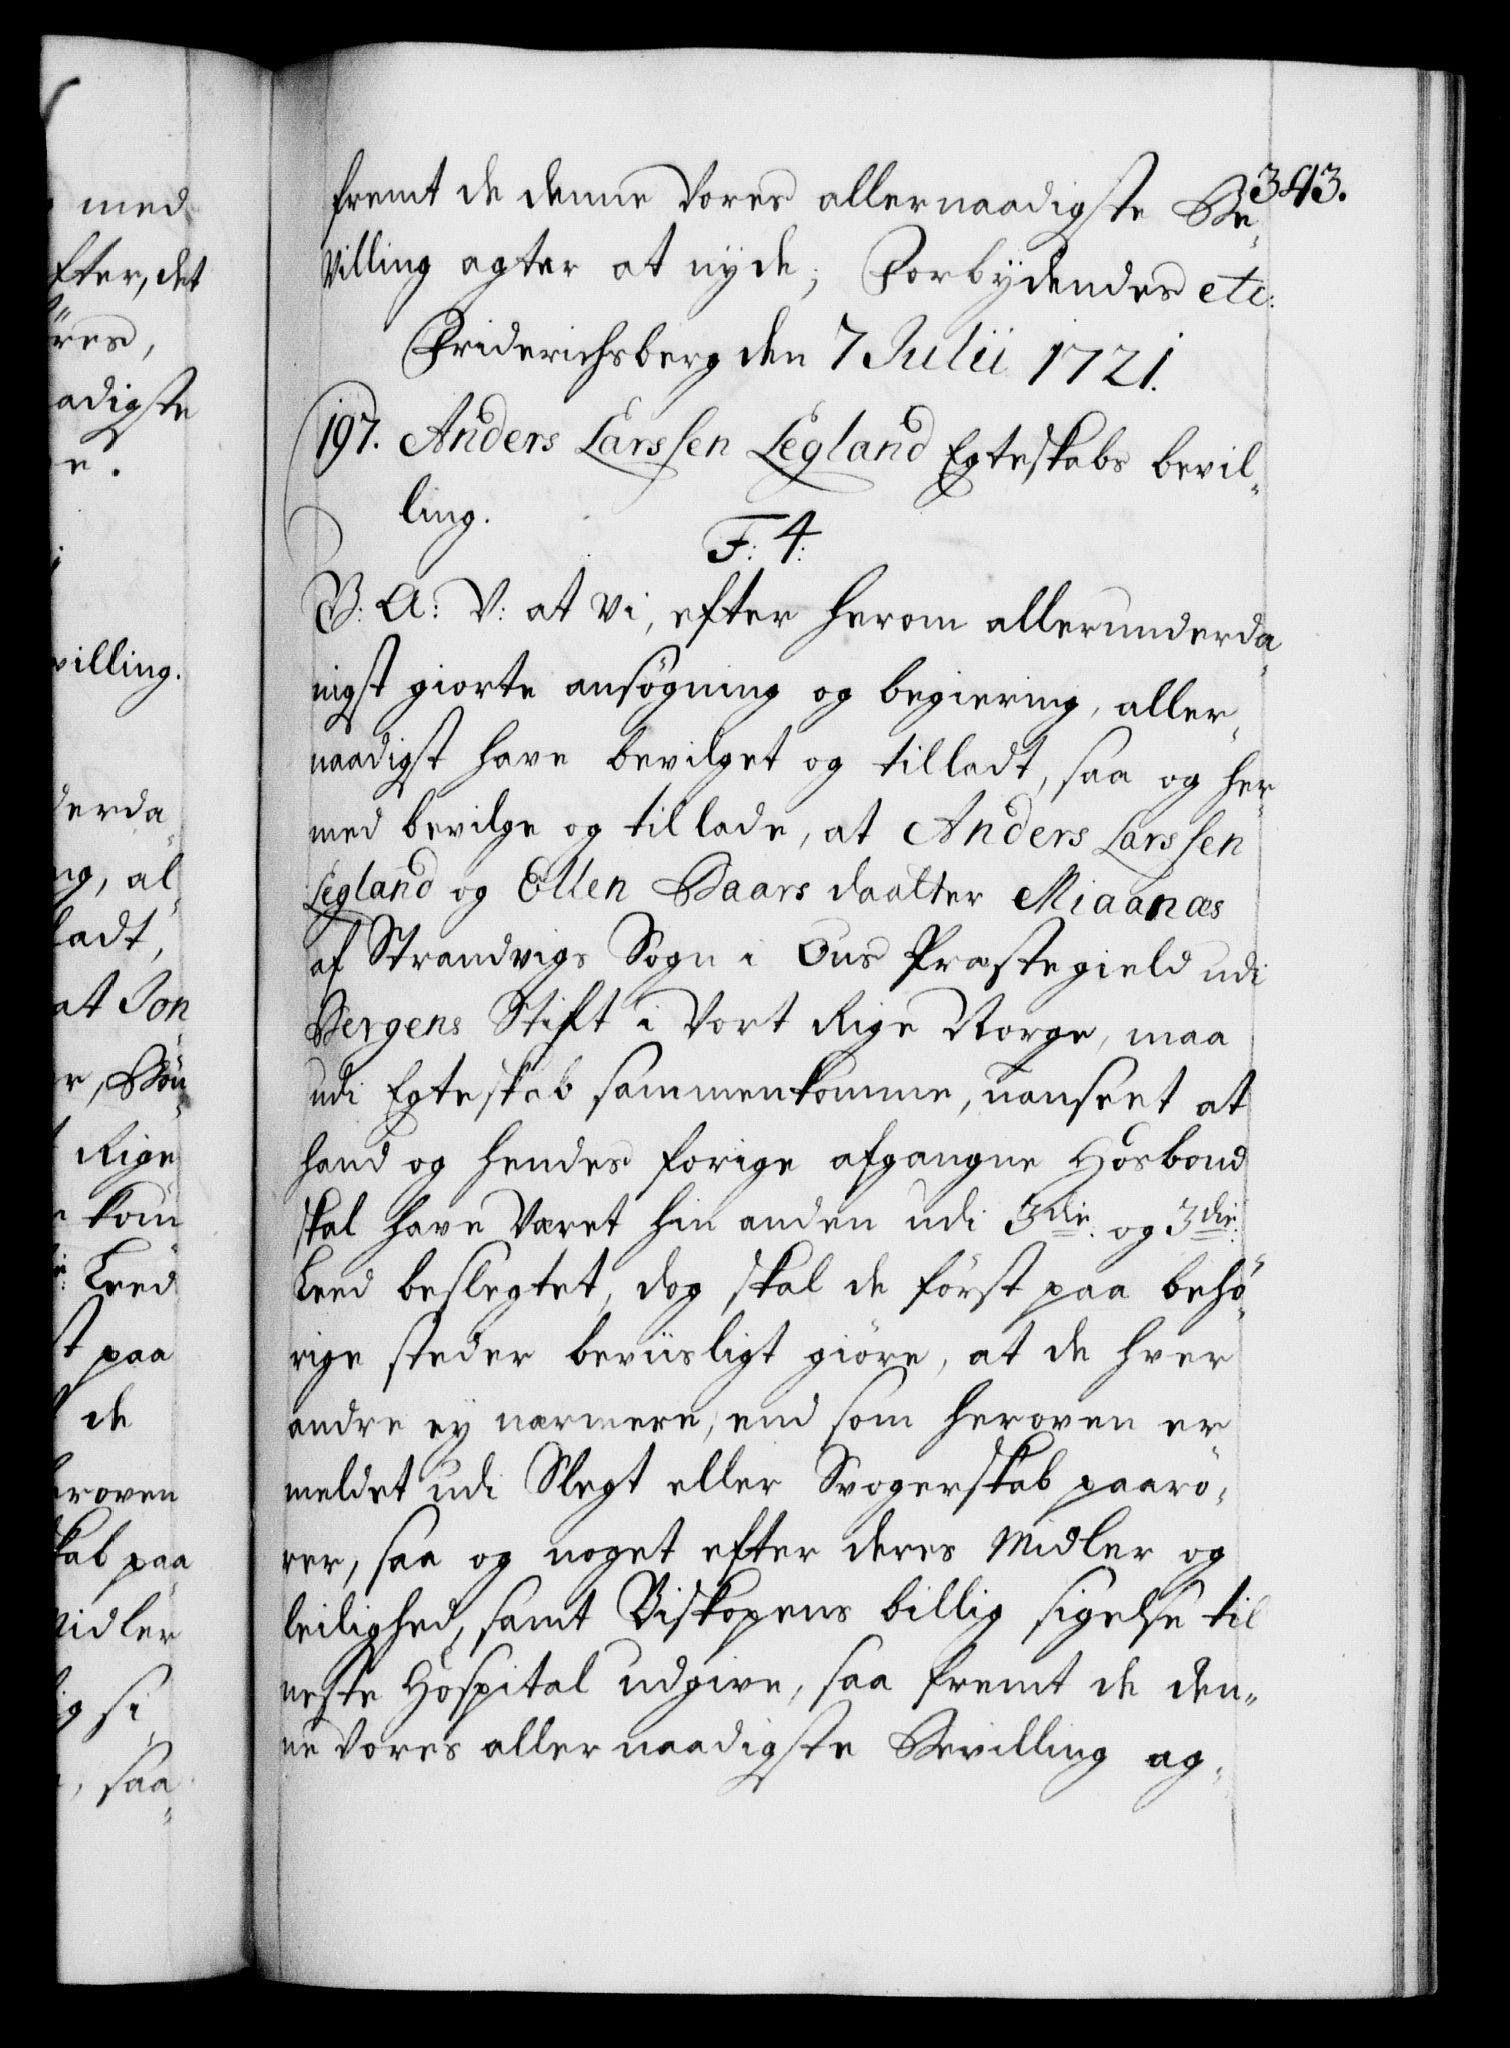 343.
fremt de denne Vores allernaadigste Be-
villing agter at nyde; Forbydendes etc:
Friderichsberg den 7 Julii 1721.
197. Anders Larssen Legland Egteskabs bevil-
ling.
F: 4:
V: A: V: at Vi, efter herom allerunderda-
nigst giorte ansøgning og begiering, aller-
naadigst have bevilget og tilladt, saa og her-
med bevilge og tillade, at Anders Larssen
Legland og Ellen Baars daatter Miaanæs
af Strandvigs Sogn i Ous Præstegield udi
Bergens Stift i Vort Rige Norge, maa
udi Egteskab sammenkomme, uanseet at
hand og hendes forige afgangne Hosbond
skal have Været hin anden udi 3die og 3die:
Leed beslegtet, dog skal de først paa behø-
rige steder beviisligt giøre, at de hver
andre ey nærmere, end som heroven er
meldet udi Slegt eller Svogerskab paarø-
rer, saa og noget efter deres Midler og
leilighed, samt Biskopens billig sigelse til
neste Hospital udgive, saa fremt de den-
ne Vores allernaadigste Bevilling ag-
med
fter, det
øres,
aadigste
e.
villing.
derda-
ng, al-
ladt,
at Jon
er, Bøn-
Rige
kom
Leed
st paa
de
eroven
skab paa-
Midler
ig si-
, saa-